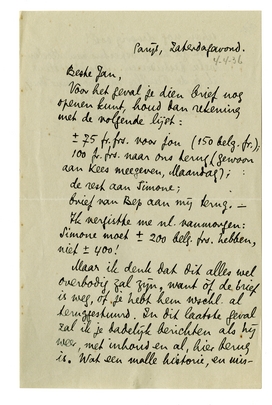 Parijs, Zaterdagavond.
4.4.36
Beste Jan,
Voor het geval je dien brief nog
openen kunt, houd dan rekening
met de volgende lijst:
± 75 fr. frs. voor jou (150 belg. fr.);
100 fr. frs. naar ons terug (gewoon
aan Kees meegeven, Maandag);
de rest aan Simone;
brief van Bep aan mij terug. —
Ik vergistte me nl. vanmorgen:
Simone moet ± 200 belg. frs. hebben,
niet ± 400!
Maar ik denk dat dit alles wel
overbodig zal zijn, want òf de brief
is weg, òf je hebt hem wschl. al
teruggestuurd. In dit laatste geval
zal ik je dadelijk berichten als hij
weer, met inhoud en al, hier terug
is. Wat een malle historie, en mis-